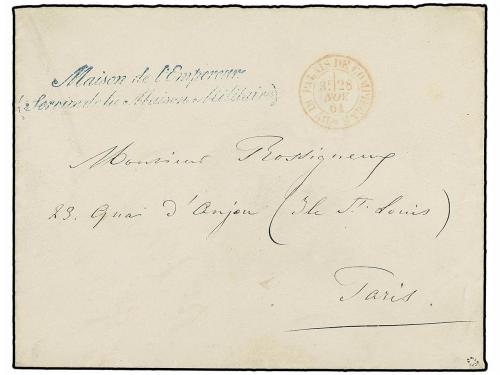 Maison de l'Empereur
(Service de la Maison Militaire)
PALAIS DE COMPIEGNE
25
NOV
61
Monsieur Rossigneux
23. Quai d'Anjou (Ile St. Louis)
Paris.